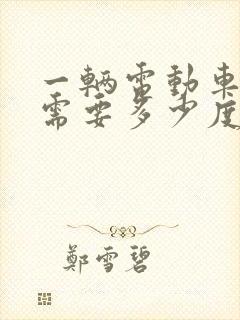 一輛電動車
需要多少度
鄭雪碧